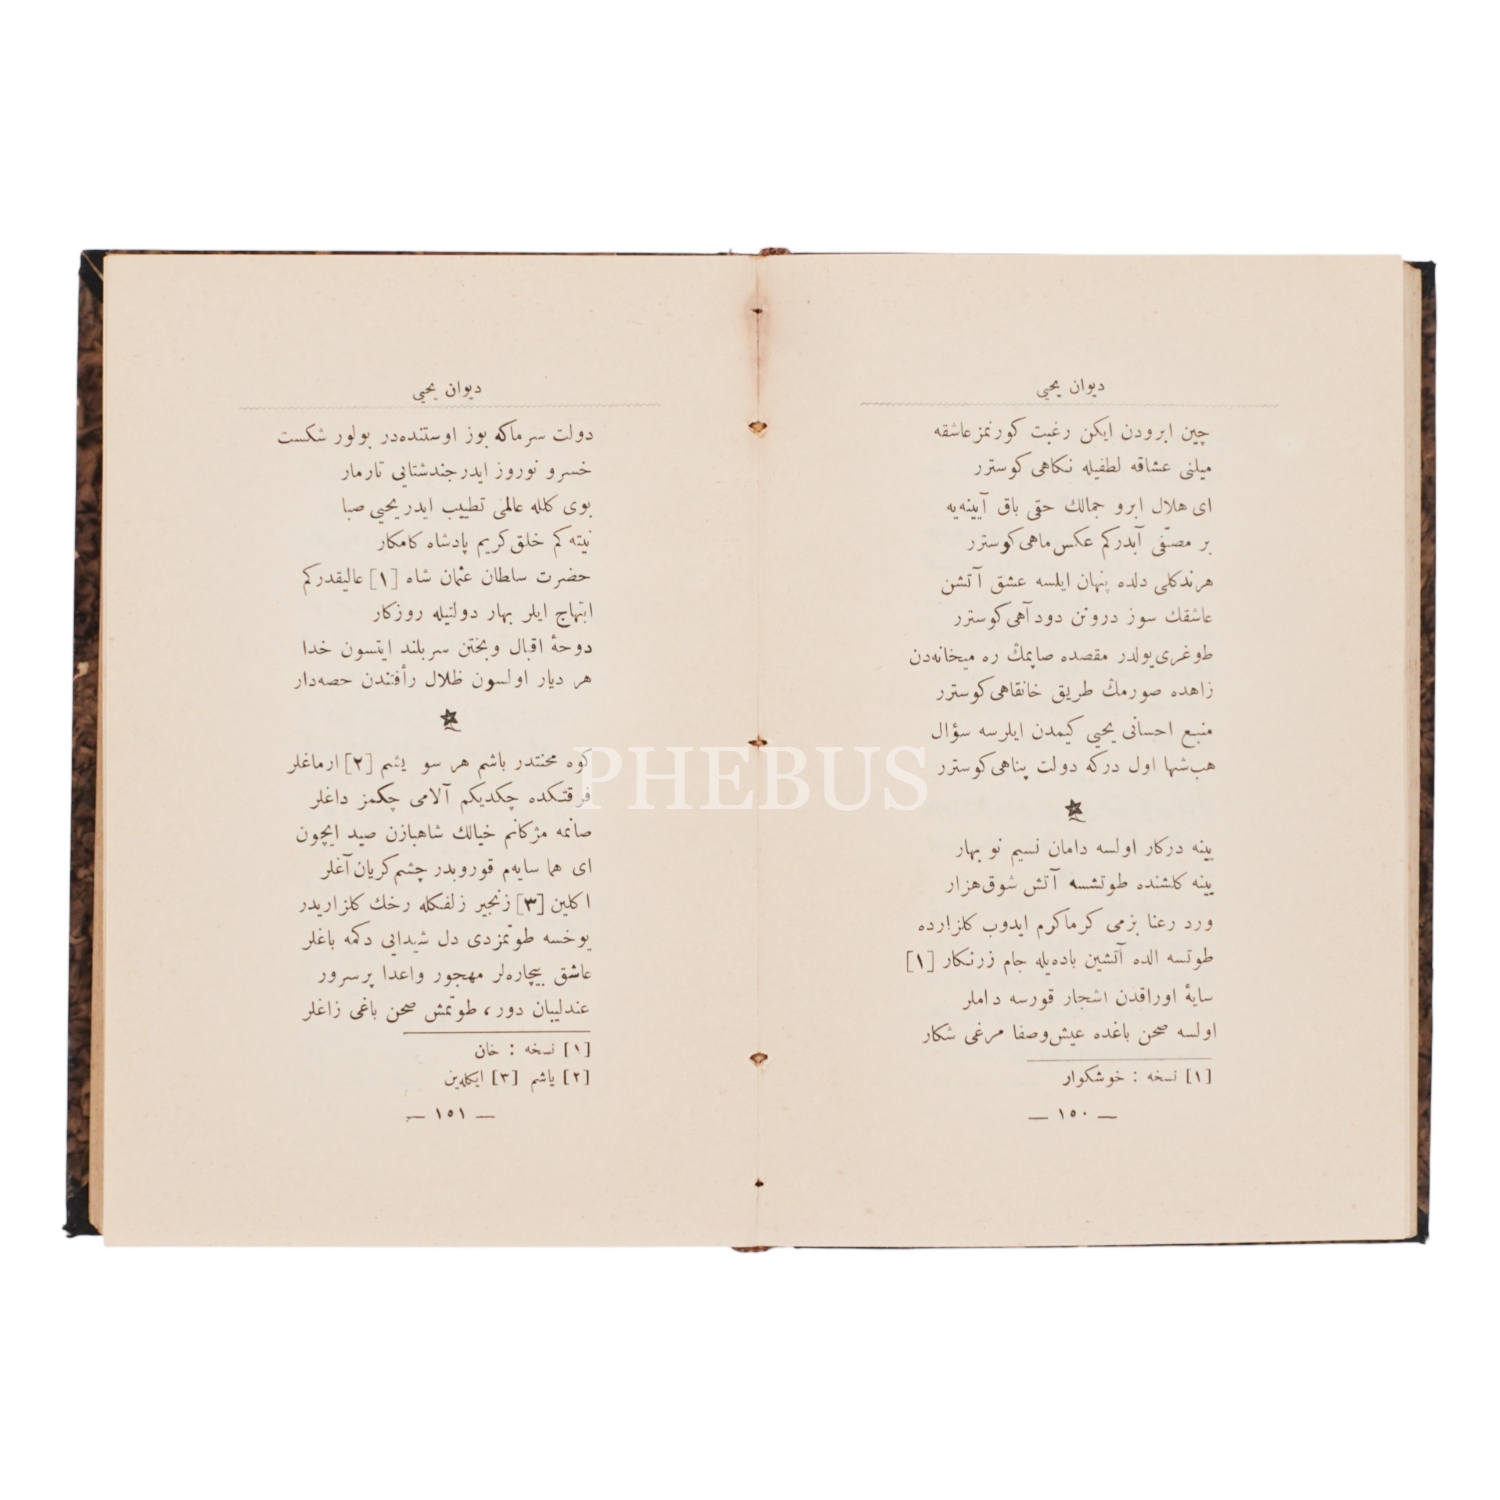 ديوان يحيي
چين ابرودن ايكن رغبت كورنمز عاشقه
ميلنی عشاقه لطفيله نكاهی كوسترر
ای هلال ابرو جمالك حقی باق آيينه‌يه
بر مصفّی آبدركم عكس ماهی كوسترر
هرندكلی دلده پنهان ايلسه عشق آتشن
عاشقك سوز درونن دود آهی كوسترر
طوغری يولدر مقصده صاپمك ره ميخانه‌دن
زاهده صورمك طريق خانقاهی كوسترر
منبع احسانی يحيي كيمدن ايلرسه سؤال
هب شها اول دركه دولت پناهی كوسترر
يينه دركار اولسه دامان نسيم نو بهار
يينه كلشنده طوتشسه آتش شوق هزار
ورد رعنا بزمی كرماكرم ايدوب كلزارده
طوتسه الده آتشين باده‌يله جام زرنكار [١]
سايهٔ اوراقدن اشجار قورسه داملر
اولسه صحن باغده عيش وصفا مرغی شكار
[١] نسخه : خوشكوار
— ١٥٠ —
ديوان يحيي
دولت سرماكه بوز اوستنده‌در بولور شكست
خسرو نوروز ايدر جندشتايی تارمار
بوی كلله عالمی تطييب ايدر يحيي صبا
نيته كم خلق كريم پادشاه كامكار
حضرت سلطان عثمان شاه [١] عاليقدركم
ابتهاج ايلر بهار دولتيله روزكار
دوحهٔ اقبال وبختن سربلند ايتسون خدا
هر ديار اولسون ظلال رأفتندن حصه‌دار
كوه محنتدر باشم هر سو يشم [٢] ارماغلر
فرقتكده چكديكم آلامی چكمز داغلر
صانمه مژكانم خيالك شاهبازن صيد ايچون
ای هما سايه‌م قوروبدر چشم كريان آغلر
اكلين [٣] زنجير زلفكله رخك كلزاريدر
يوخسه طوتمزدی دل شيدايی دكمه باغلر
عاشق بيچاره‌لر مهجور واعدا پرسرور
عندليبان دور، طوتمش صحن باغی زاغلر
[١] نسخه : خان
[٢] ياشم [٣] ايكله‌ين
— ١٥١ —
PHEBUS